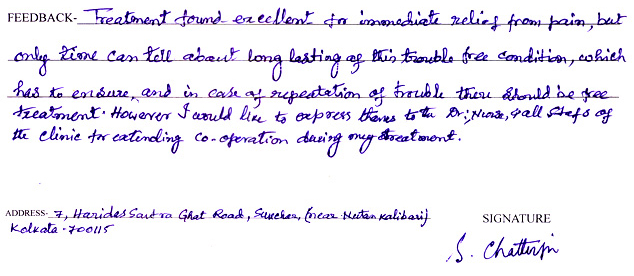 FEEDBACK- Treatment found excellent for immediate relief from pain, but
only time can tell about long lasting of this trouble free condition, which
has to ensure, and in case of repeatation of trouble there should be free
treatment. However I would like to express thanks to the Dr, Nurse, & all staffs of
the clinic for extending co-operation during my treatment.
ADDRESS- 7, Haridas Ghat Road, Sukchar, (near Natun Kalibari)
Kolkata - 700115
SIGNATURE
S. Chatterjee